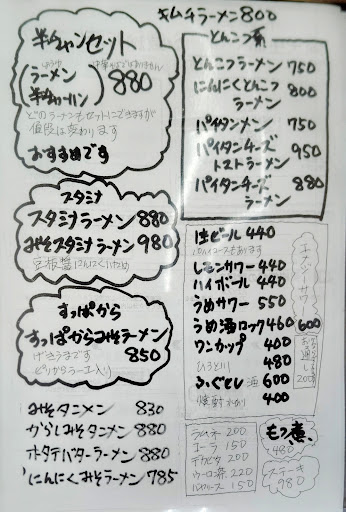 キムチラーメン800
半チャンセット
しょうゆ
(ラーメン
半チャーハン
880
どのラーメンもセットにできますが
値段は変わります
おすすめです
スタミナ
スタミナラーメン 880
みそスタミナラーメン 980
豆板醤にんにくいため
すっぱから
すっぱからみそラーメン
850
げきうまです
ピリからラー
みそタンメン 830
からしみそタンメン 880
ホタテバターラーメン 880
にんにくみそラーメン 785
とんこつ系
とんこつラーメン 750
にんにくとんこつ
ラーメン 800
パイタンメン 750
パイタンチーズ
トマトラーメン 950
パイタンチーズ
ラーメン 880
生ビール 440
レモンサワー 440
ハイボール 440
うめサワー 550
うめ酒ロック 460
ワンカップ 400
480
600
400
600
ラムネ 200
コーラ 150
デカビタ 200
ウーロン茶 220
150
もつ煮
480
ステーキ
980